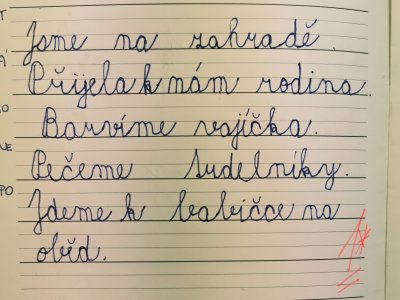 Jsme na zahradě.
Přijela k nám rodina.
Barvíme vajíčka.
NE Pečeme trdelníky.
PO Jdeme k babičce na
oběd.